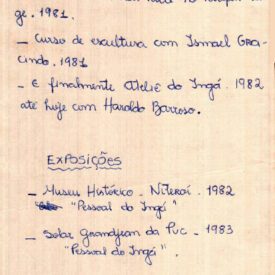 ge. 1981.
- Curso de escultura com Ismael Gra
cindo. 1981
- E finalmente Ateliê do Ingá. 1982
até hoje com Haroldo Barroso.
EXPOSIÇÕES
- Museu Histórico - Niterói. 1982
"Pessoal do Ingá"
- Solar Grandjean da PUC - 1983
"Pessoal do Ingá".